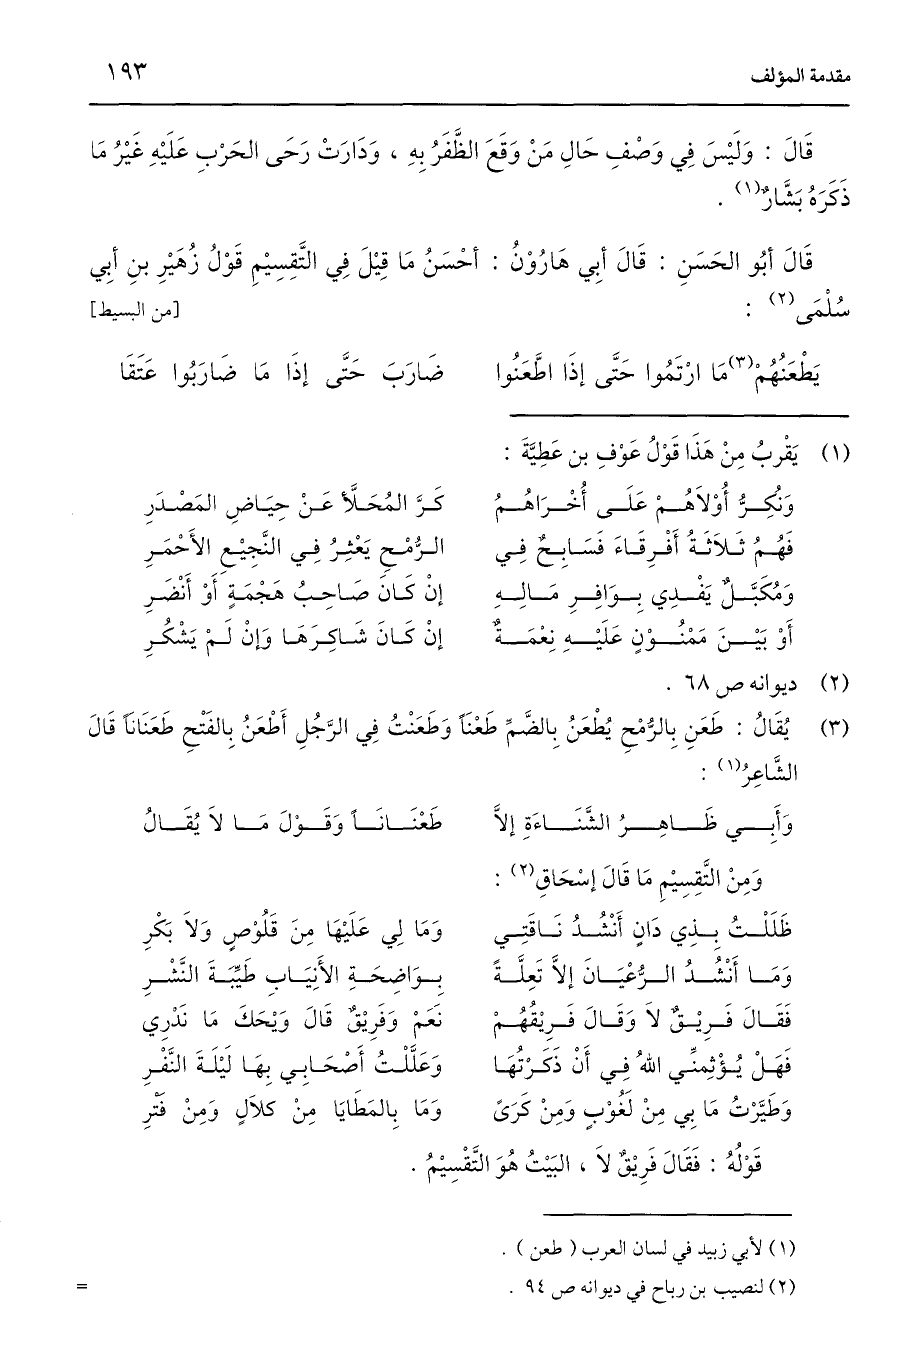 مقدمة المؤلف ١٩٣
قَالَ : وَلَيْسَ فِي وَصْفِ حَالِ مَنْ وَقَعَ الظَّفَرُ بِهِ ، وَدَارَتْ رَحَى الحَرْبِ عَلَيْهِ غَيْرُ مَا
ذَكَرَهُ بَشَّارٌ(١) .
قَالَ أَبُو الحَسَنِ : قَالَ أَبِي هَارُوْنُ : أَحْسَنُ مَا قِيْلَ فِي التَّقْسِيْمِ قَوْلُ زُهَيْرِ بنِ أَبِي
سُلْمَى(٢) : [من البسيط]
يَطْعَنُهُمْ(٣) مَا ارْتَمُوا حَتَّى إِذَا اطَّعَنُوا ضَارَبَ حَتَّى إِذَا مَا ضَارَبُوا عَتَقَا
(١) يَقْرِبُ مِنْ هَذَا قَوْلُ عَوْفِ بن عَطِيَّةَ :
وَنُكِرُّ أُوْلاَهُمْ عَلَى أُخْرَاهُمُ كَرَّ المُحَلَّأ عَنْ حِيَاضِ المَصْدَرِ
فَهُمُ ثَلاَثَةُ أَفْرِقَاءَ فَسَابِحٌ فِي الرُّمْحِ يَعْثِرُ فِي النَّجِيْعِ الأَحْمَرِ
وَمُكَبَّلٌ يَفْدِي بِوَافِرِ مَالِهِ إِنْ كَانَ صَاحِبُ هَجْمَةٍ أَوْ أَنْضَرِ
أَوْ بَيْنَ مَمْنُوْنٍ عَلَيْهِ نِعْمَةٌ إِنْ كَانَ شَاكِرَهَا وَإِنْ لَمْ يَشْكُرِ
(٢) ديوانه ص ٦٨ .
(٣) يُقَالُ : طَعَنِ بِالرُّمْحِ يُطْعَنُ بِالضَّمِّ طَعْنَاً وَطَعَنْتُ فِي الرَّجُلِ أَطْعَنُ بِالفَتْحِ طَعَنَاناً قَالَ
الشَّاعِرُ(١) :
وَأَبِي ظَاهِرُ الشَّنَاءَةِ إِلاَّ طَعْنَانَاً وَقَوْلَ مَا لاَ يُقَالُ
وَمِنْ التَّقْسِيْمِ مَا قَالَ إِسْحَاق(٢) :
ظَلَلْتُ بِذِي دَانٍ أَنْشُدُ نَاقَتِي وَمَا لِي عَلَيْهَا مِنَ قَلُوْصٍ وَلاَ بَكْرِ
وَمَا أَنْشُدُ الرُّعْيَانَ إِلاَّ تَعِلَّةً بِوَاضِحَةِ الأَنْيَابِ طَيِّبَةَ النَّشْرِ
فَقَالَ فَرِيْقٌ لاَ وَقَالَ فَرِيْقُهُمْ نَعَمْ وَفَرِيْقٌ قَالَ وَيْحَكَ مَا نَدْرِي
فَهَلْ يُؤْثِمنِّي اللهُ فِي أَنْ ذَكَرْتُهَا وَعَلَّلْتُ أَصْحَابِي بِهَا لَيْلَةَ النَّفْرِ
وَطَيَّرْتُ مَا بِي مِنْ لَغُوْبٍ وَمِنْ كَرَىً وَمَا بِالمَطَايَا مِنْ كلاَلٍ وَمِنْ فَتْرِ
قَوْلُهُ : فَقَالَ فَرِيْقٌ لاَ ، البَيْتُ هُوَ التَّقْسِيْمُ .
(١) لأبي زبيد في لسان العرب ( طعن ) .
(٢) لنصيب بن رباح في ديوانه ص ٩٤ . =